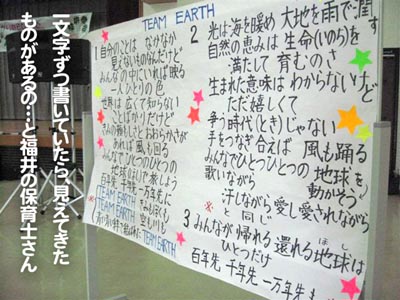 一文字ずつ書いていたら、見えてきた
ものがあるの…と福井の保育士さん
TEAM EARTH
1 自分のことは なかなか
見えないものなんだけど
みんなの中にいれば映る
一人ひとりの色
世界は広くて知らない
ことばかりだけど
あれば 風も回る
みんなでひとつひとつの
地球をまわして旅しよう
百年先 千年先 一万年先に
TEAM EARTH
TEAM EARTH
2 光は海を暖め 大地を雨で潤す
自然の恵みは 生命(いのち)を
満たして 育むのさ
生まれた意味は わからないけど
ただ嬉しくて
争う時代(とき)じゃない
手をつなぎ合えば 風も踊る
みんなでひとつひとつの 地球を
歌いながら 動かそう
汗しながら 愛し愛されながら
※ と同じ
3 みんなが 帰れる 還れる 地球(ほし)は
ひとつだけ
百年先 千年先 一万年先も
TEAM EARTH